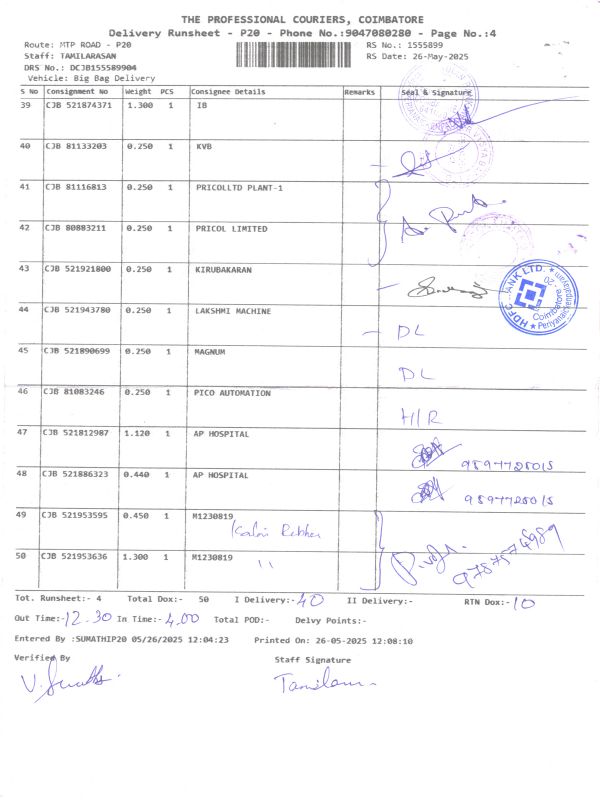 THE PROFESSIONAL COURIERS, COIMBATORE
Delivery Runsheet - P20 - Phone No.:9047080280 - Page No.:4
Route: MTP ROAD - P20 RS No.: 1555899
Staff: TAMILARASAN RS Date: 26-May-2025
DRS No.: DCJB155589904
Vehicle: Big Bag Delivery
S No Consignment No Weight PCS Consignee Details Remarks Seal & Signature
39 CJB 521874371 1.300 1 IB
40 CJB 81133203 0.250 1 KVB
41 CJB 81116813 0.250 1 PRICOLLTD PLANT-1
42 CJB 80883211 0.250 1 PRICOL LIMITED
43 CJB 521921800 0.250 1 KIRUBAKARAN
HDFC BANK LTD.
Coimbatore
44 CJB 521943780 0.250 1 LAKSHMI MACHINE DL
45 CJB 521890699 0.250 1 MAGNUM DL
46 CJB 81083246 0.250 1 PICO AUTOMATION H/R
47 CJB 521812987 1.120 1 AP HOSPITAL 9597728015
48 CJB 521886323 0.440 1 AP HOSPITAL 9597728015
49 CJB 521953595 0.450 1 M1230819
50 CJB 521953636 1.300 1 M1230819 11
Tot. Runsheet:- 4 Total Dox:- 50 I Delivery:- 40 II Delivery:- RTN Dox:- 10
Out Time:- 12.30 In Time:- 4.00 Total POD:- Delvy Points:-
Entered By :SUMATHIP20 05/26/2025 12:04:23 Printed On: 26-05-2025 12:08:10
Verified By Staff Signature